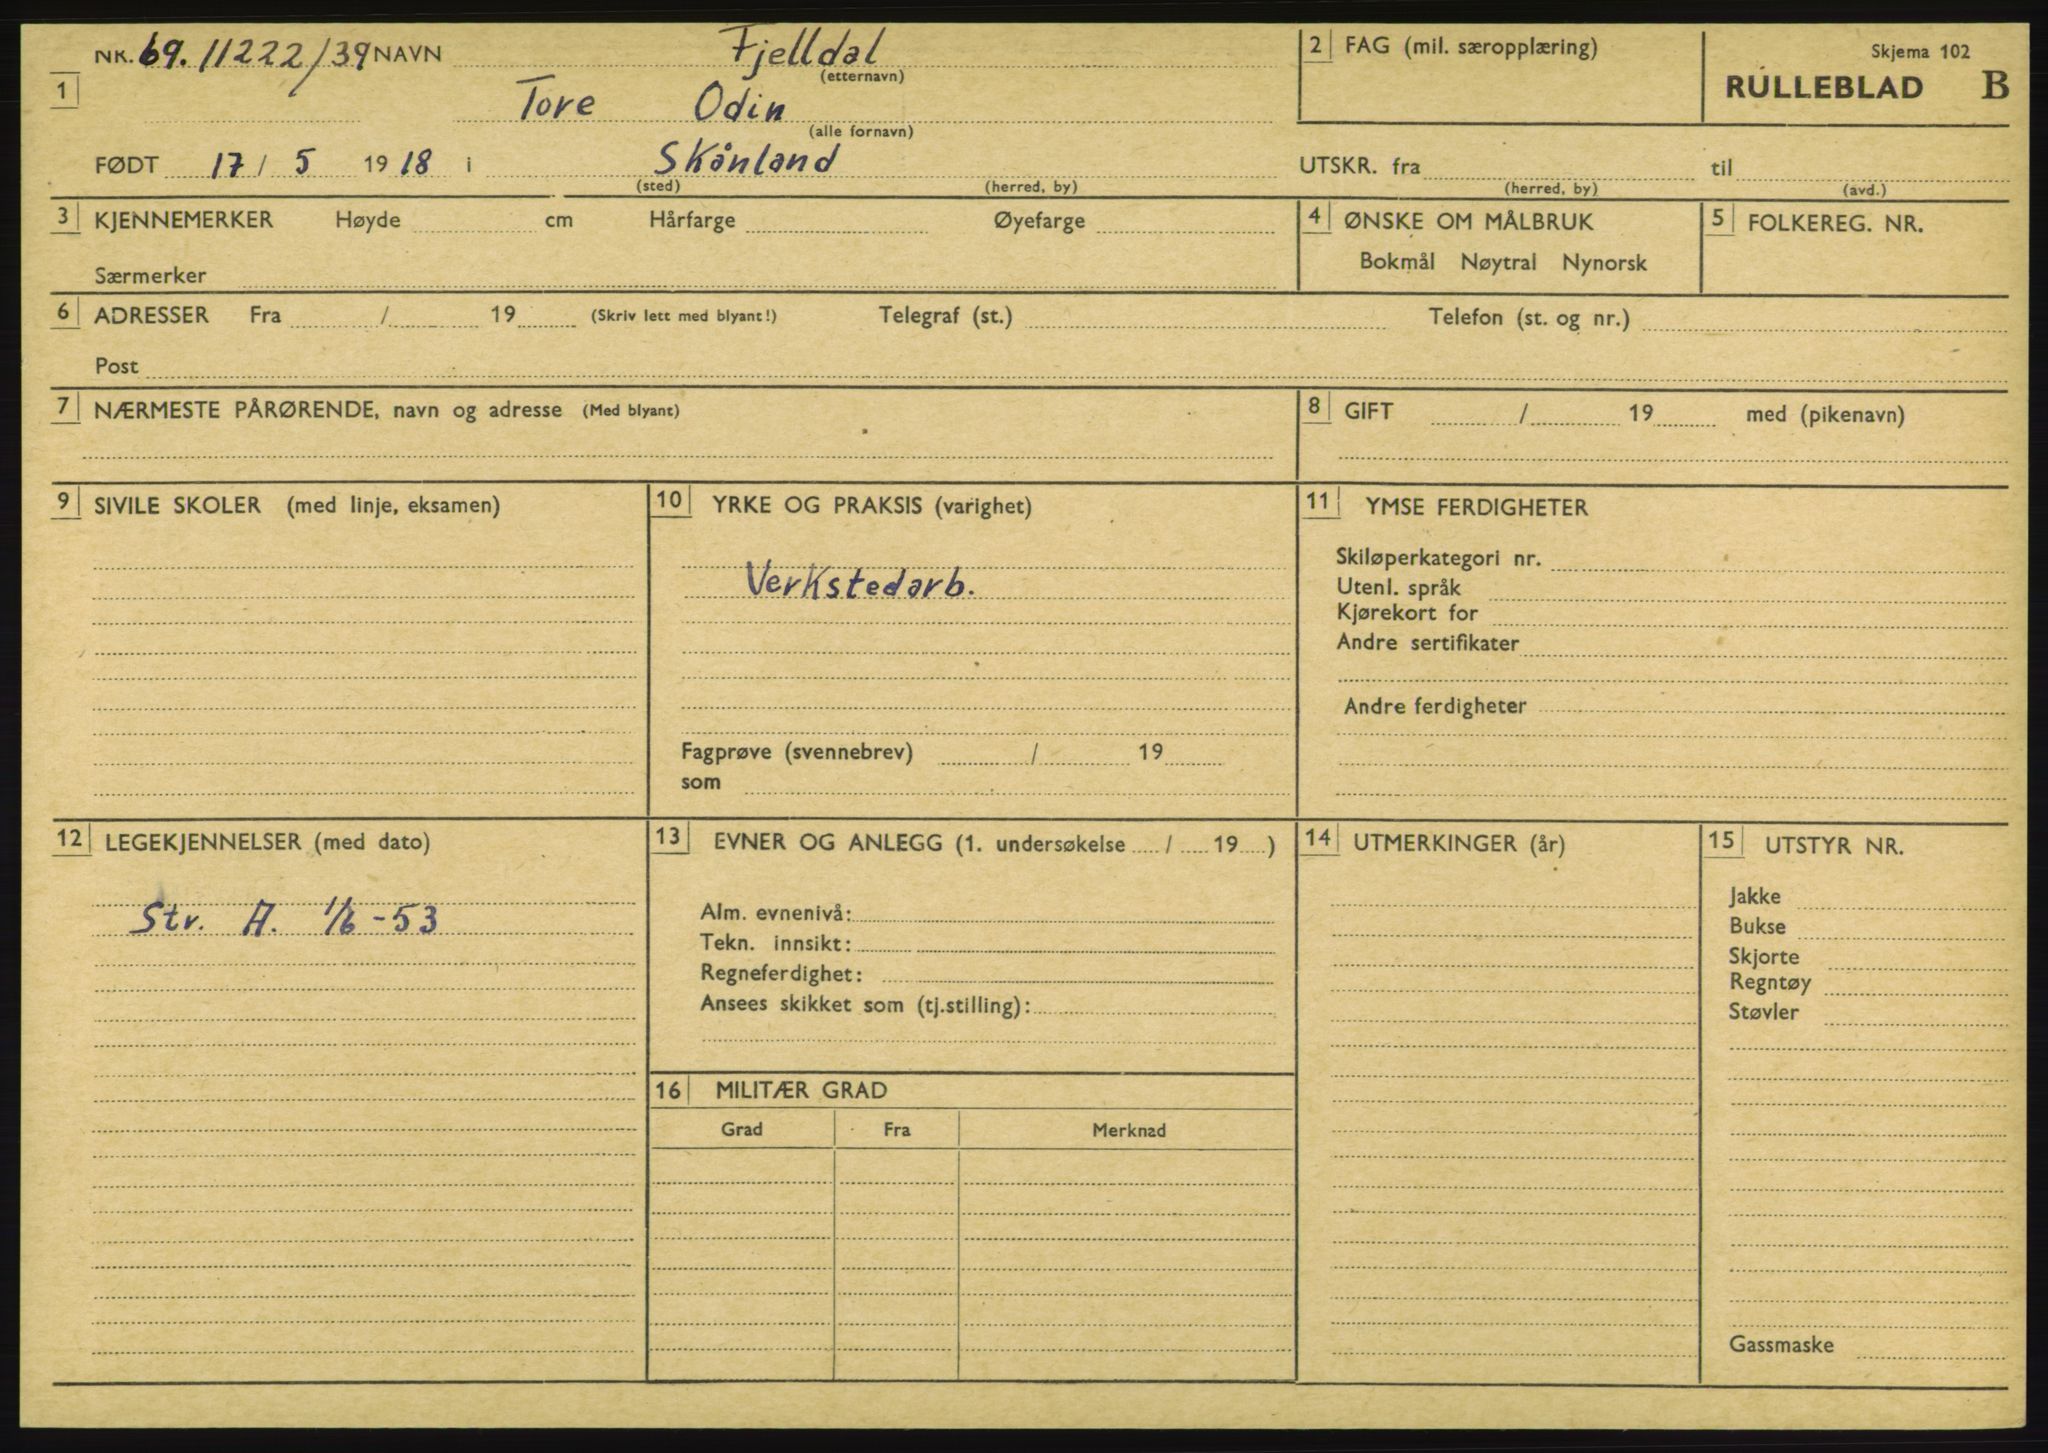 NR. 69. 11222/39 NAVN Fjelldal
(etternavn)
2 FAG (mil. særopplæring)
Skjema 102
RULLEBLAD B
1 Tore Odin
(alle fornavn)
FØDT 17 / 5 19 18 i Skånland
(sted) (herred, by)
UTSKR. fra til
(herred, by) (avd.)
3 KJENNEMERKER Høyde cm Hårfarge Øyefarge
Særmerker
4 ØNSKE OM MÅLBRUK
Bokmål Nøytral Nynorsk
5 FOLKEREG. NR.
6 ADRESSER Fra / 19 (Skriv lett med blyant!) Telegraf (st.) Telefon (st. og nr.)
Post
7 NÆRMESTE PÅRØRENDE, navn og adresse (Med blyant)
8 GIFT / 19 med (pikenavn)
9 SIVILE SKOLER (med linje, eksamen)
10 YRKE OG PRAKSIS (varighet)
Verkstedarb.
Fagprøve (svennebrev) / 19
som
11 YMSE FERDIGHETER
Skiløperkategori nr.
Utenl. språk
Kjørekort for
Andre sertifikater
Andre ferdigheter
12 LEGEKJENNELSER (med dato)
Str. A. 1/6-53
13 EVNER OG ANLEGG (1. undersøkelse / 19 )
Alm. evnenivå:
Tekn. innsikt:
Regneferdighet:
Ansees skikket som (tj.stilling):
14 UTMERKINGER (år)
15 UTSTYR NR.
Jakke
Bukse
Skjorte
Regntøy
Støvler
Gassmaske
16 MILITÆR GRAD
Grad Fra Merknad